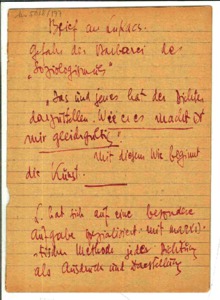 Brief an Lukács.
Gefahr der Barbarei des
"Soziologismus"
"Das und jenes hat der Dichter
darzustellen. Wie er es macht ist
mir gleichgültig"
Mit diesem Wie beginnt
die Kunst.
L. hat sich auf eine besondere
Aufgabe spezialisiert: mit
Methode jeder Dichtung
als Ausdruck und Darstellung